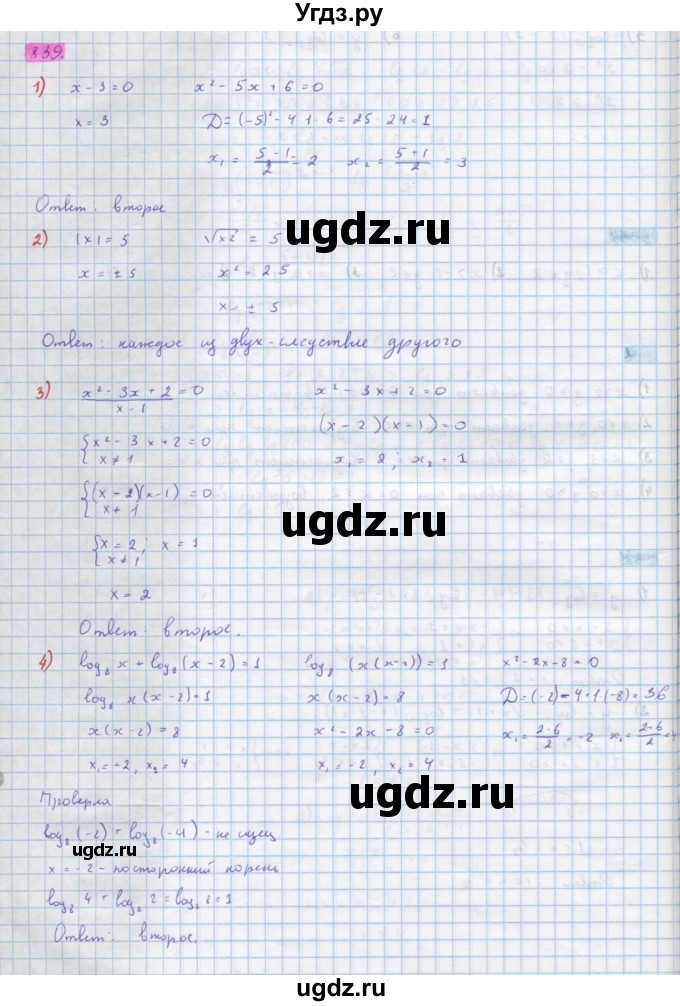 Угдз.ру
839.
1) x - 3 = 0   x² - 5x + 6 = 0
x = 3   D = (-5)² - 4·1·6 = 25 24 = 1
x₁ = (5 - 1)/2 = 2   x₂ = (5 + 1)/2 = 3
Ответ: второе
ugdz.ru
2) |x| = 5   √x² = 5
x = ± 5   x² = 25
x = ± 5
Ответ: каждое из двух - следствие другого
3) (x² - 3x + 2)/(x - 1) = 0   x² - 3x + 2 = 0
(x - 2)(x - 1) = 0
{x² - 3x + 2 = 0
x ≠ 1   x₁ = 2; x₂ = 1
{(x - 2)(x - 1) = 0
x ≠ 1
ugdz.ru
{x = 2; x = 1
x ≠ 1
x = 2
Ответ: второе.
4) log₈ x + log₈ (x - 2) = 1   log₈ (x(x - 2)) = 1   x² - 2x - 8 = 0
log₈ x(x - 2) = 1   x(x - 2) = 8   D = (-2) - 4·1·(-8) = 36
x(x - 2) = 8   x² - 2x - 8 = 0   x₁ = (2 - 6)/2 = -2   x₂ = (2 - 6)/2 = 4
x₁ = -2, x₂ = 4   x₁ = -2, x₂ = 4
ugdz.ru
Проверка
log₈ (-2) + log₈ (-4) - не сущ
ugdz.ru
x = -2 - посторонний корень
log₈ 4 + log₈ 2 = log₈ 8 = 1
Ответ: второе.
ugdz.ru